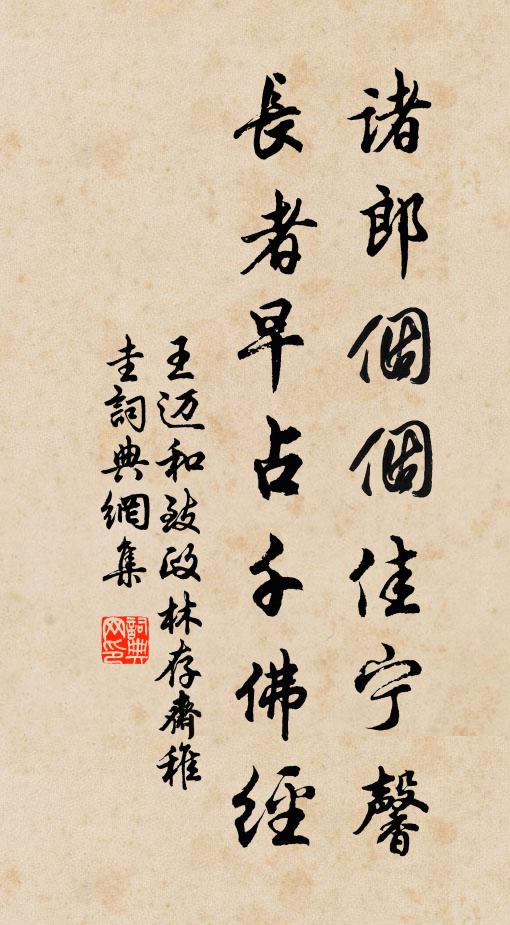 諸郎個個佳宁馨
長者早占千佛經
王迈和致政林存齋稚
圭詞典網集
詞典网印